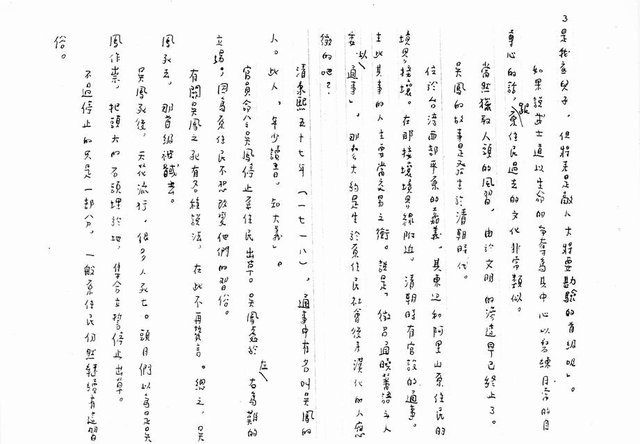 3
是我的兒子，但將來是敵人大將要勘驗的首級呢」。
如果說武士道以生命的爭奪為其中心以磨練自命的目
專心的話，跟原住民過去的文化非常類似。
當然獵取人頭的風習，由於文明的滲透早已終止了。
吳鳳的故事是發生於清朝時代。
位於台灣西部平原的嘉義，其東邊和阿里山原住民的
境界接壤。在那接壤境界線附近，清朝時有官設的通事。
主此其事的人主要當交易之衝。說是，徵召通曉蕃語之人
委以通事」，那麼大約是生於原住民社會後來漢化的人應
徵的吧？
清康熙五十七年（一七一八），通事中有名叫吳鳳的
人。此人，年少讀書，知大義」。
官員命令吳鳳停止原住民出草。吳鳳處於左右為難的
立場。因為原住民不想改變他們的習俗。
有關吳鳳之死有各種說法，在此不再贅言。總之，吳
鳳死去，那首級被馘去。
吳鳳死後，天花流行，很多人死亡。頭目們以為是吳
鳳作祟，把頭大的石頭埋於地，集合立誓停止出草。
不過停止的只是一部分，一般原住民仍然繼續有這習
俗。